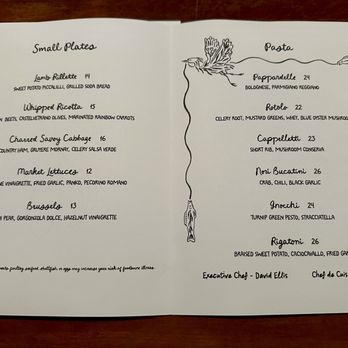 Small Plates
Lamb Rillette 14
SWEET POTATO PICCALILLI, GRILLED SODA BREAD
Whipped Ricotta 15
BEETS, CASTELVETRANO OLIVES, MARINATED RAINBOW CARROTS
Charred Savoy Cabbage 16
COUNTRY HAM, GRUYERE MORNAY, CELERY SALSA VERDE
Market Lettuces 12
VINAIGRETTE, FRIED GARLIC, PANKO, PECORINO ROMANO
Brussels 13
PEAR, GORGONZOLA DOLCE, HAZELNUT VINAIGRETTE
poultry, seafood, shellfish, or eggs may increase your risk of foodborne illness.
Pasta
Pappardelle 24
BOLOGNESE, PARMIGIANO REGGIANO
Rotolo 22
CELERY ROOT, MUSTARD GREENS, WHEY, BLUE OYSTER MUSHROOM
Cappelletti 23
SHORT RIB, MUSHROOM CONSERVA
Nori Bucatini 26
CRAB, CHILI, BLACK GARLIC
Gnocchi 24
TURNIP GREEN PESTO, STRACCIATELLA
Rigatoni 26
BRAISED SWEET POTATO, CACIOCAVALLO, FRIED
Executive Chef - David Ellis
Chef de